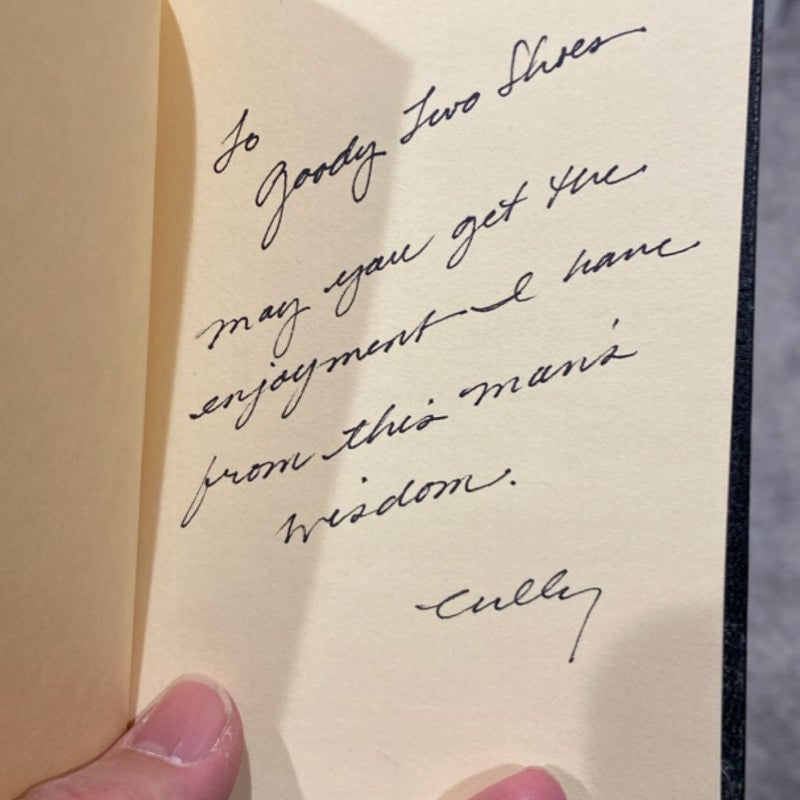 To
Goody Two Shoes
may you get the
enjoyment I have
from this man's
wisdom.
Cully